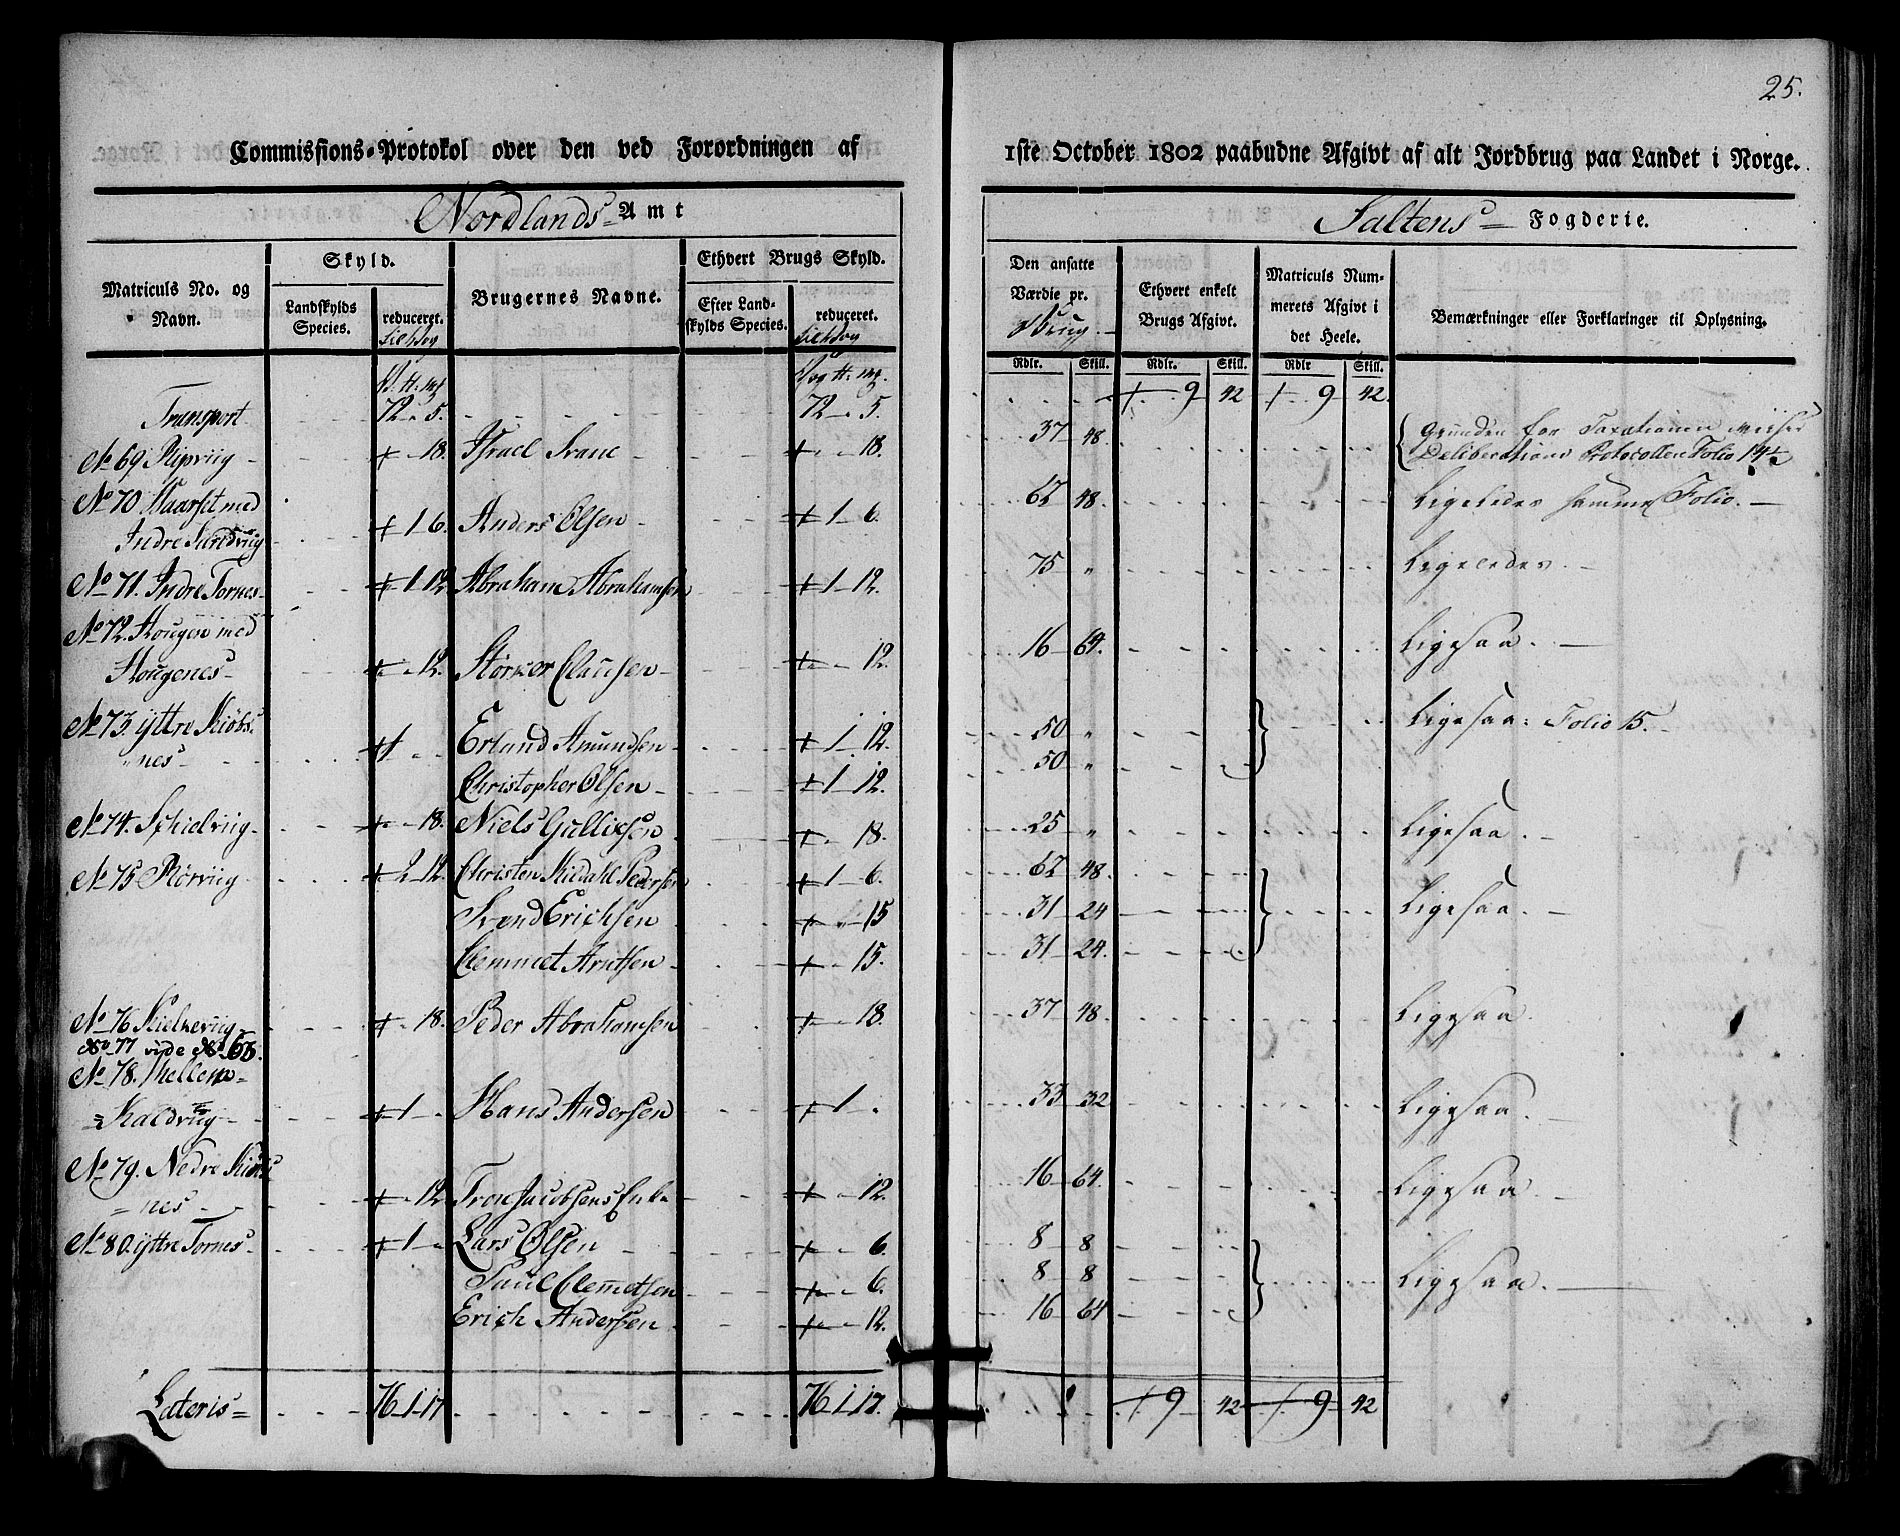 25.
Commissions-Protokol over den ved Forordningen af 1ste October 1802 paabudne Afgivt af alt Jordbrug paa Landet i Norge.
Nordlands Amt
Saltens Fogderie.
Matriculs No. og Navn.
Skyld.
Landskylds Species.
reduceret.
Brugernes Navne.
Ethvert Brugs Skyld.
Efter Landskylds Species.
reduceret.
Den ansatte Værdie pr. Brug
Ethvert enkelt Brugs Afgivt.
Matriculs Nummerets Afgivt i det Heele.
Bemærkninger eller Forklaringer til Oplysning.
Rdlr. Skill. Rdlr. Skill. Rdlr Skill.
Transport 72 - 5. 72 - 5. 9 42 9 42.
No 69 18. Israel Svane 18. 37 48. Grunden for Taxationen
Deliberations Protocollen Folio 14
No 70 med
Indre Sandviig 1 6. Anders Olsen 1 6. 62 48. Ligeledes samme Folio.
No 71. Indre Tornes 1 12 Abraham Abrahamsen 1 12. 75 " Ligeledes.
No 72. Hougen med
Hougenes 12. Størker Clausen 12. 16 64. Ligesaa.
No 73. yttre Kiøbs-
nes 1 Erland Amundsen 1 12. 50 " Ligesaa: Folio 15.
Christopher Olsen 1 12. 50 "
No 74. 18. Niels Gullixsen 18. 25 " Ligesaa.
No 75 Rørviig 2 12. Christen Pedersen 1 6. 62 48.
Svend Erichsen 15 31 24 Ligesaa.
Clemmet Arntsen 15. 31 24.
No 76 18. Peder Abrahamsen 18. 37 48. Ligesaa.
No 77 vide No 65.
No 78. Mellem=
=Kaldviig 1 Hans Andersen 1 33 32 Ligesaa.
No 79. Nedre
=nes 12 Tron Jacobsens Enke 12. 16 64. Ligesaa.
No 80. yttre Tornes 1 Lars Olsen 6. 8 8
Paul Clemetsen 6. 8 8 Ligesaa.
Erich Andersen 12. 16 64
Lateris 76 1 17 76 1 17. 9 42 9 42